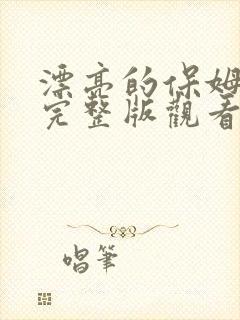 漂亮的保姆
完整版觀看
唱筆